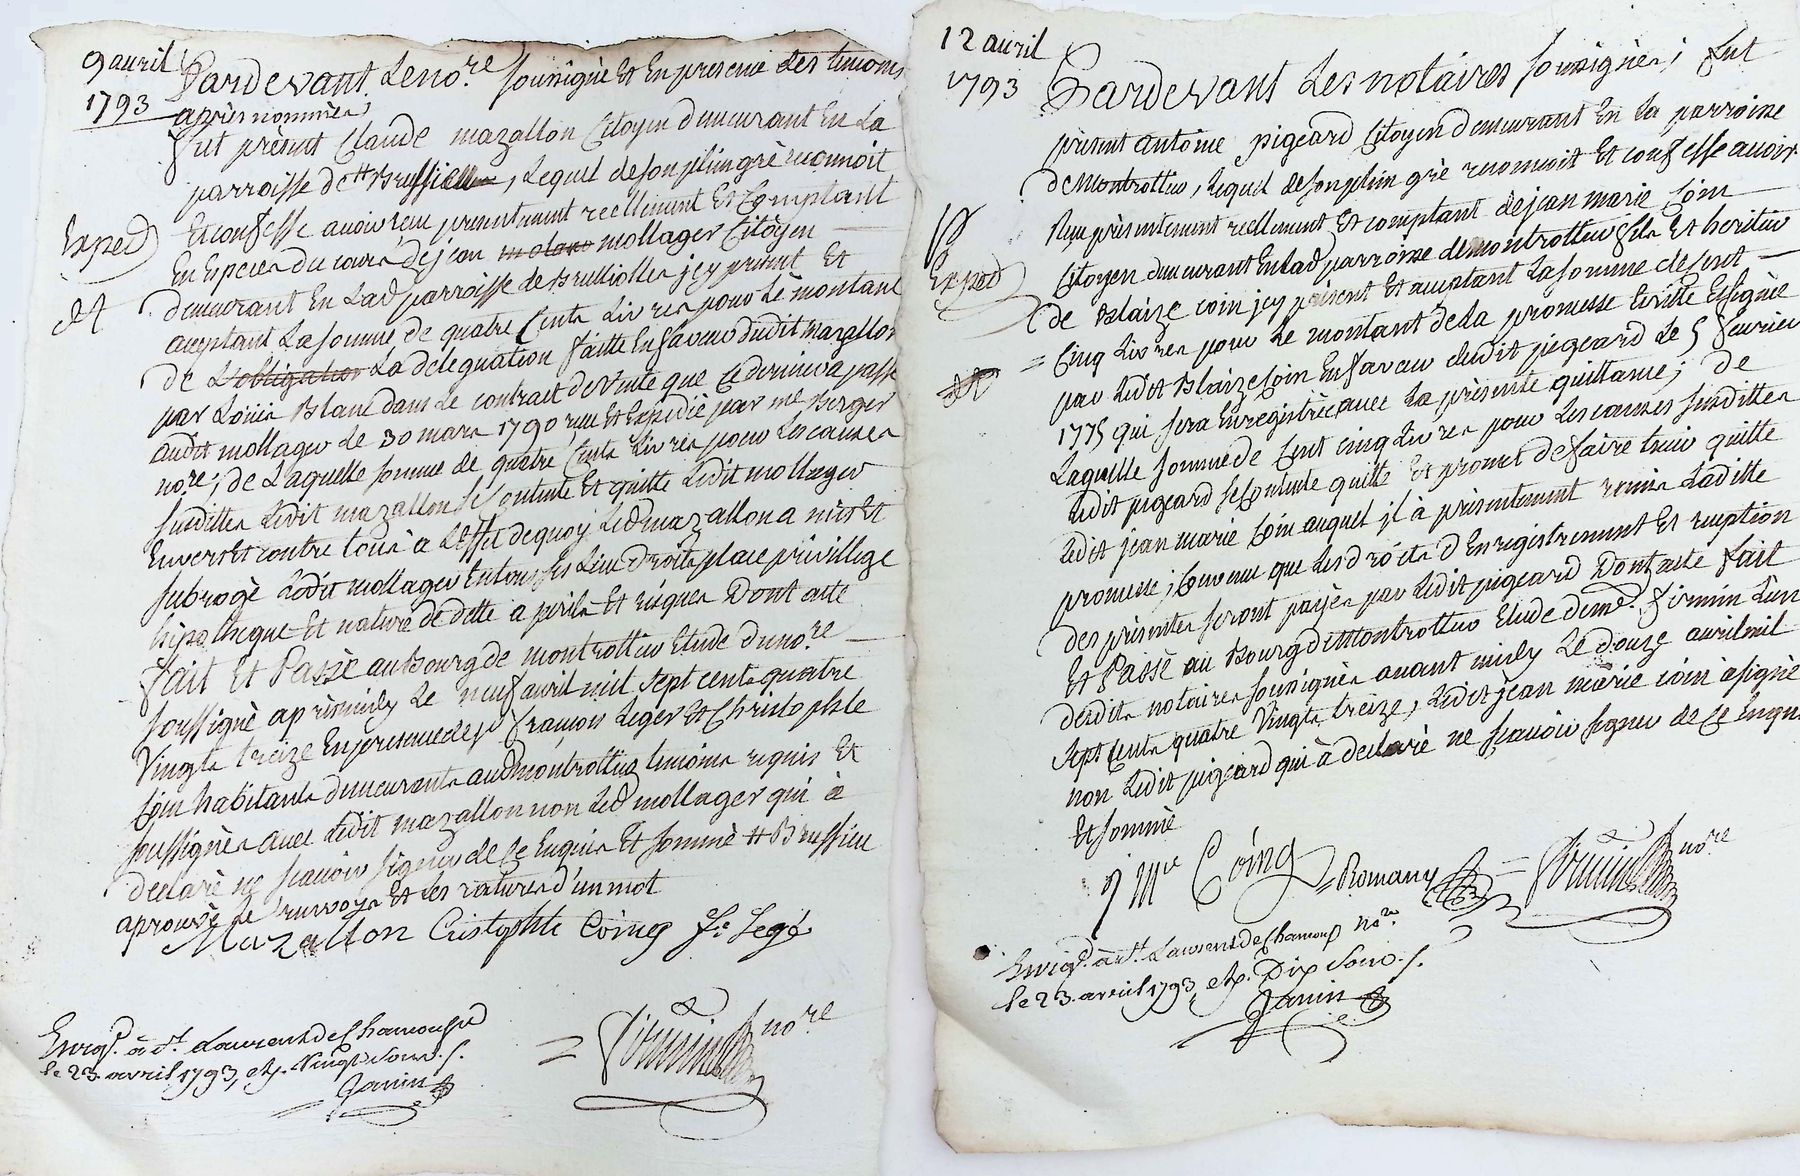 9 avril
1793
Pardevant Le no.re soussigné Et En presence des temoins
après nommés
fut présent Claude mazallon Citoyen demeurant En La
parroisse de # Brussiolles, Lequel de son plein grè reconnoit
Et confesse avoir reçu presentement reellement Et Comptant
Exped
En Espèces du cours de jean molano mollager Citoyen
demeurant En Lad parroisse de Brulliolles jcy present Et
acceptant La somme de quatre Cents Livres pour Le montant
de L'obligation La deleguation faitte En faveur dudit mazallon
par Loüis Blanc dans Le contrat de Vente que Ce dernier a passé
audit mollager Le 30 mars 1790, reçu Et Expedié par me. Berger
no.re; de Laquelle somme de quatre Cents Livres pour Les causes
susdittes Ledit mazallon se Contente Et quitte Ledit mollager
Envers Et contre tous à L'Effet de quoy Led mazallon a mis Et
subrogé Ledit mollager En tous ses Lieu droits place privillege
hipotheque Et nature de dette a perils Et risques Dont acte
fait Et Passé au Bourg de montrottier Etude du no.re
soussigné après midy Le neuf avril mil sept cents quatre
Vingts treize En presence de sr françois Leger Et Christophle
Coin habitants demeurants aud montrottier temoins requis Et
soussignés avec Ledit mazallon non Led mollager qui à
declaré ne sçavoir signer de Ce Enquis Et sommé # Brussieu
aprouvé Le renvoy Et Les ratures d'un mot
Mazallon Cristophle Coing fs Legé
Enrig.d à St. Laurent de Chamousset
le 23 avril 1793, Vingt sous
Janin
firmin no.re
12 avril
1793
Pardevant Les notaires soussignés; fut
présent antoine pigeard Citoyen demeurant En La parroisse
de Montrottier, Lequel de son plein grè reconnoit Et confesse avoir
Reçu présentement reellement Et comptant de jean marie Coin
Exped
Citoyen demeurant En Lad parroisse de montrottier fils Et heritier
de Blaize coin jcy présent Et acceptant La somme de Cent
Cinq Livres pour Le montant de La promesse Ecritte Et signée
par Ledit Blaize Coin En faveur dudit pigeard Le 5 fevrier
1775 qui sera Enregistrée avec La présente quittance; de
Laquelle somme de Cent cinq Livres pour Les causes susdittes
Ledit pigeard se Contente quitte Et promet de faire tenir quitte
Ledit jean marie Coin auquel jl à présentement remis Laditte
promesse; Convenu que Les droits d'Enregistrement Et reception
des présentes seront payés par Ledit pigeard Dont acte fait
Et Passé au Bourg de Montrottier Etude de me. firmin L'un
desdits notaires soussignés avant midy Le douze avril mil
sept Cents quatre Vingts treize, Ledit jean marie coin à signé
non Ledit pigeard qui à declaré ne sçavoir signer de Ce Enquis
Et sommé
J Mie Coing Romany firmin no.re
Enrig.d à St. Laurent de Chamous no.re
le 23 avril 1793, Dix sous
Janin